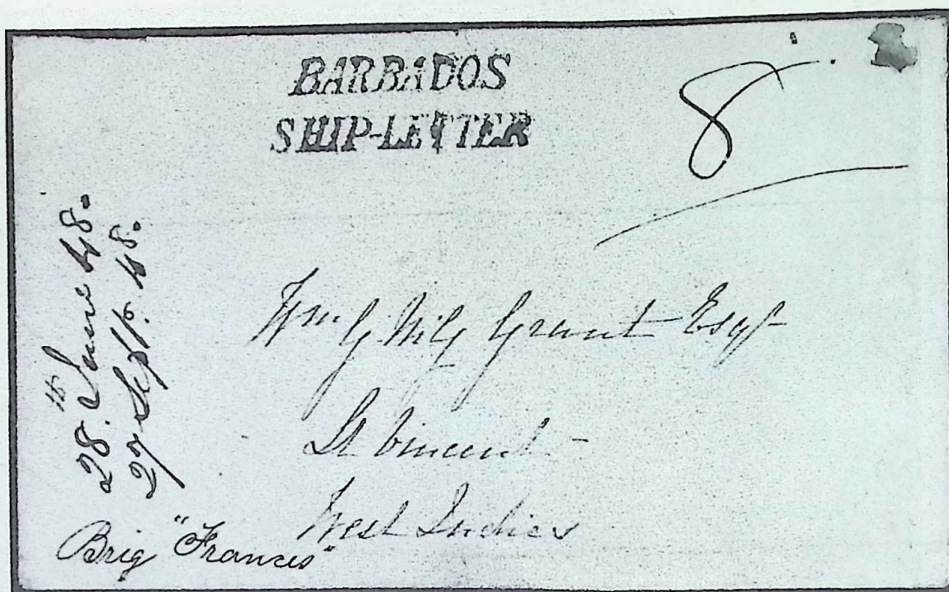 BARBADOS
SHIP-LETTER
8
28. June 48.
27 Sept. 48.
Wm G Grant Esqr
St Vincent
West Indies
Brig "Francis"